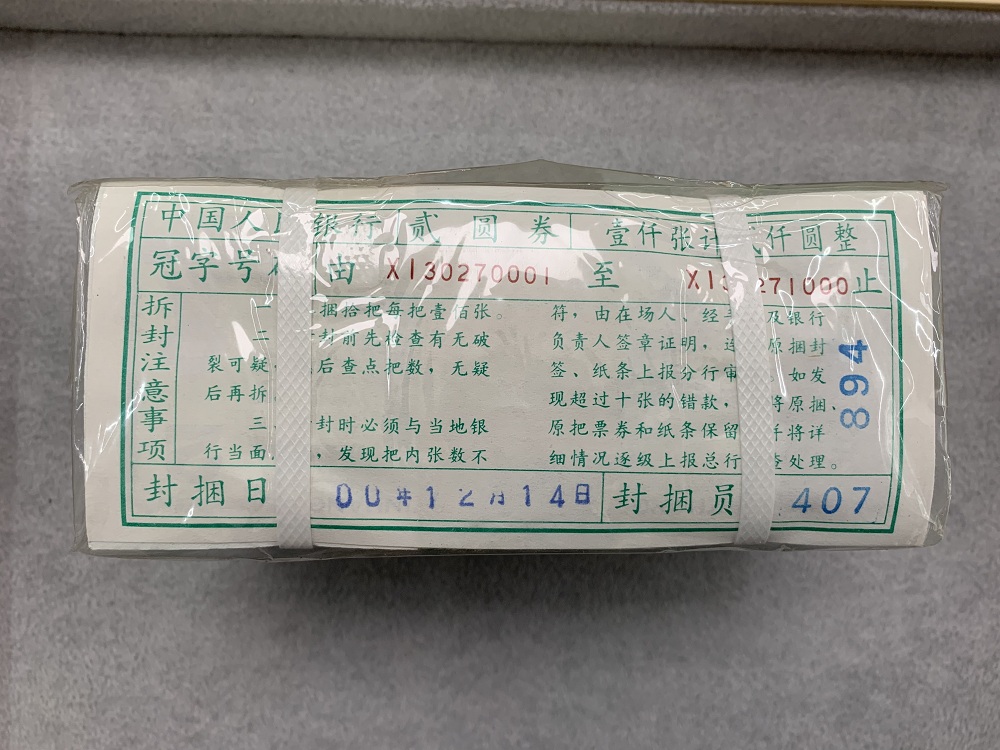 中国人民银行 贰圆券 壹仟张计贰仟圆整
冠字号 由 XI30270001 至 XI 271000 止
拆封注意事项
一 捆拾把每把壹佰张。
二 封前先检查有无破
裂可疑, 后查点把数，无疑
后再拆
三、 封时必须与当地银
行当面 ，发现把内张数不
符，由在场人、经手 及银行
负责人签章证明，连 原捆封
签、纸条上报分行审 如发
现超过十张的错款， 将原捆、
原把票券和纸条保留 并将详
细情况逐级上报总行 查处理。
894
封捆日 00年12月14日 封捆员 407